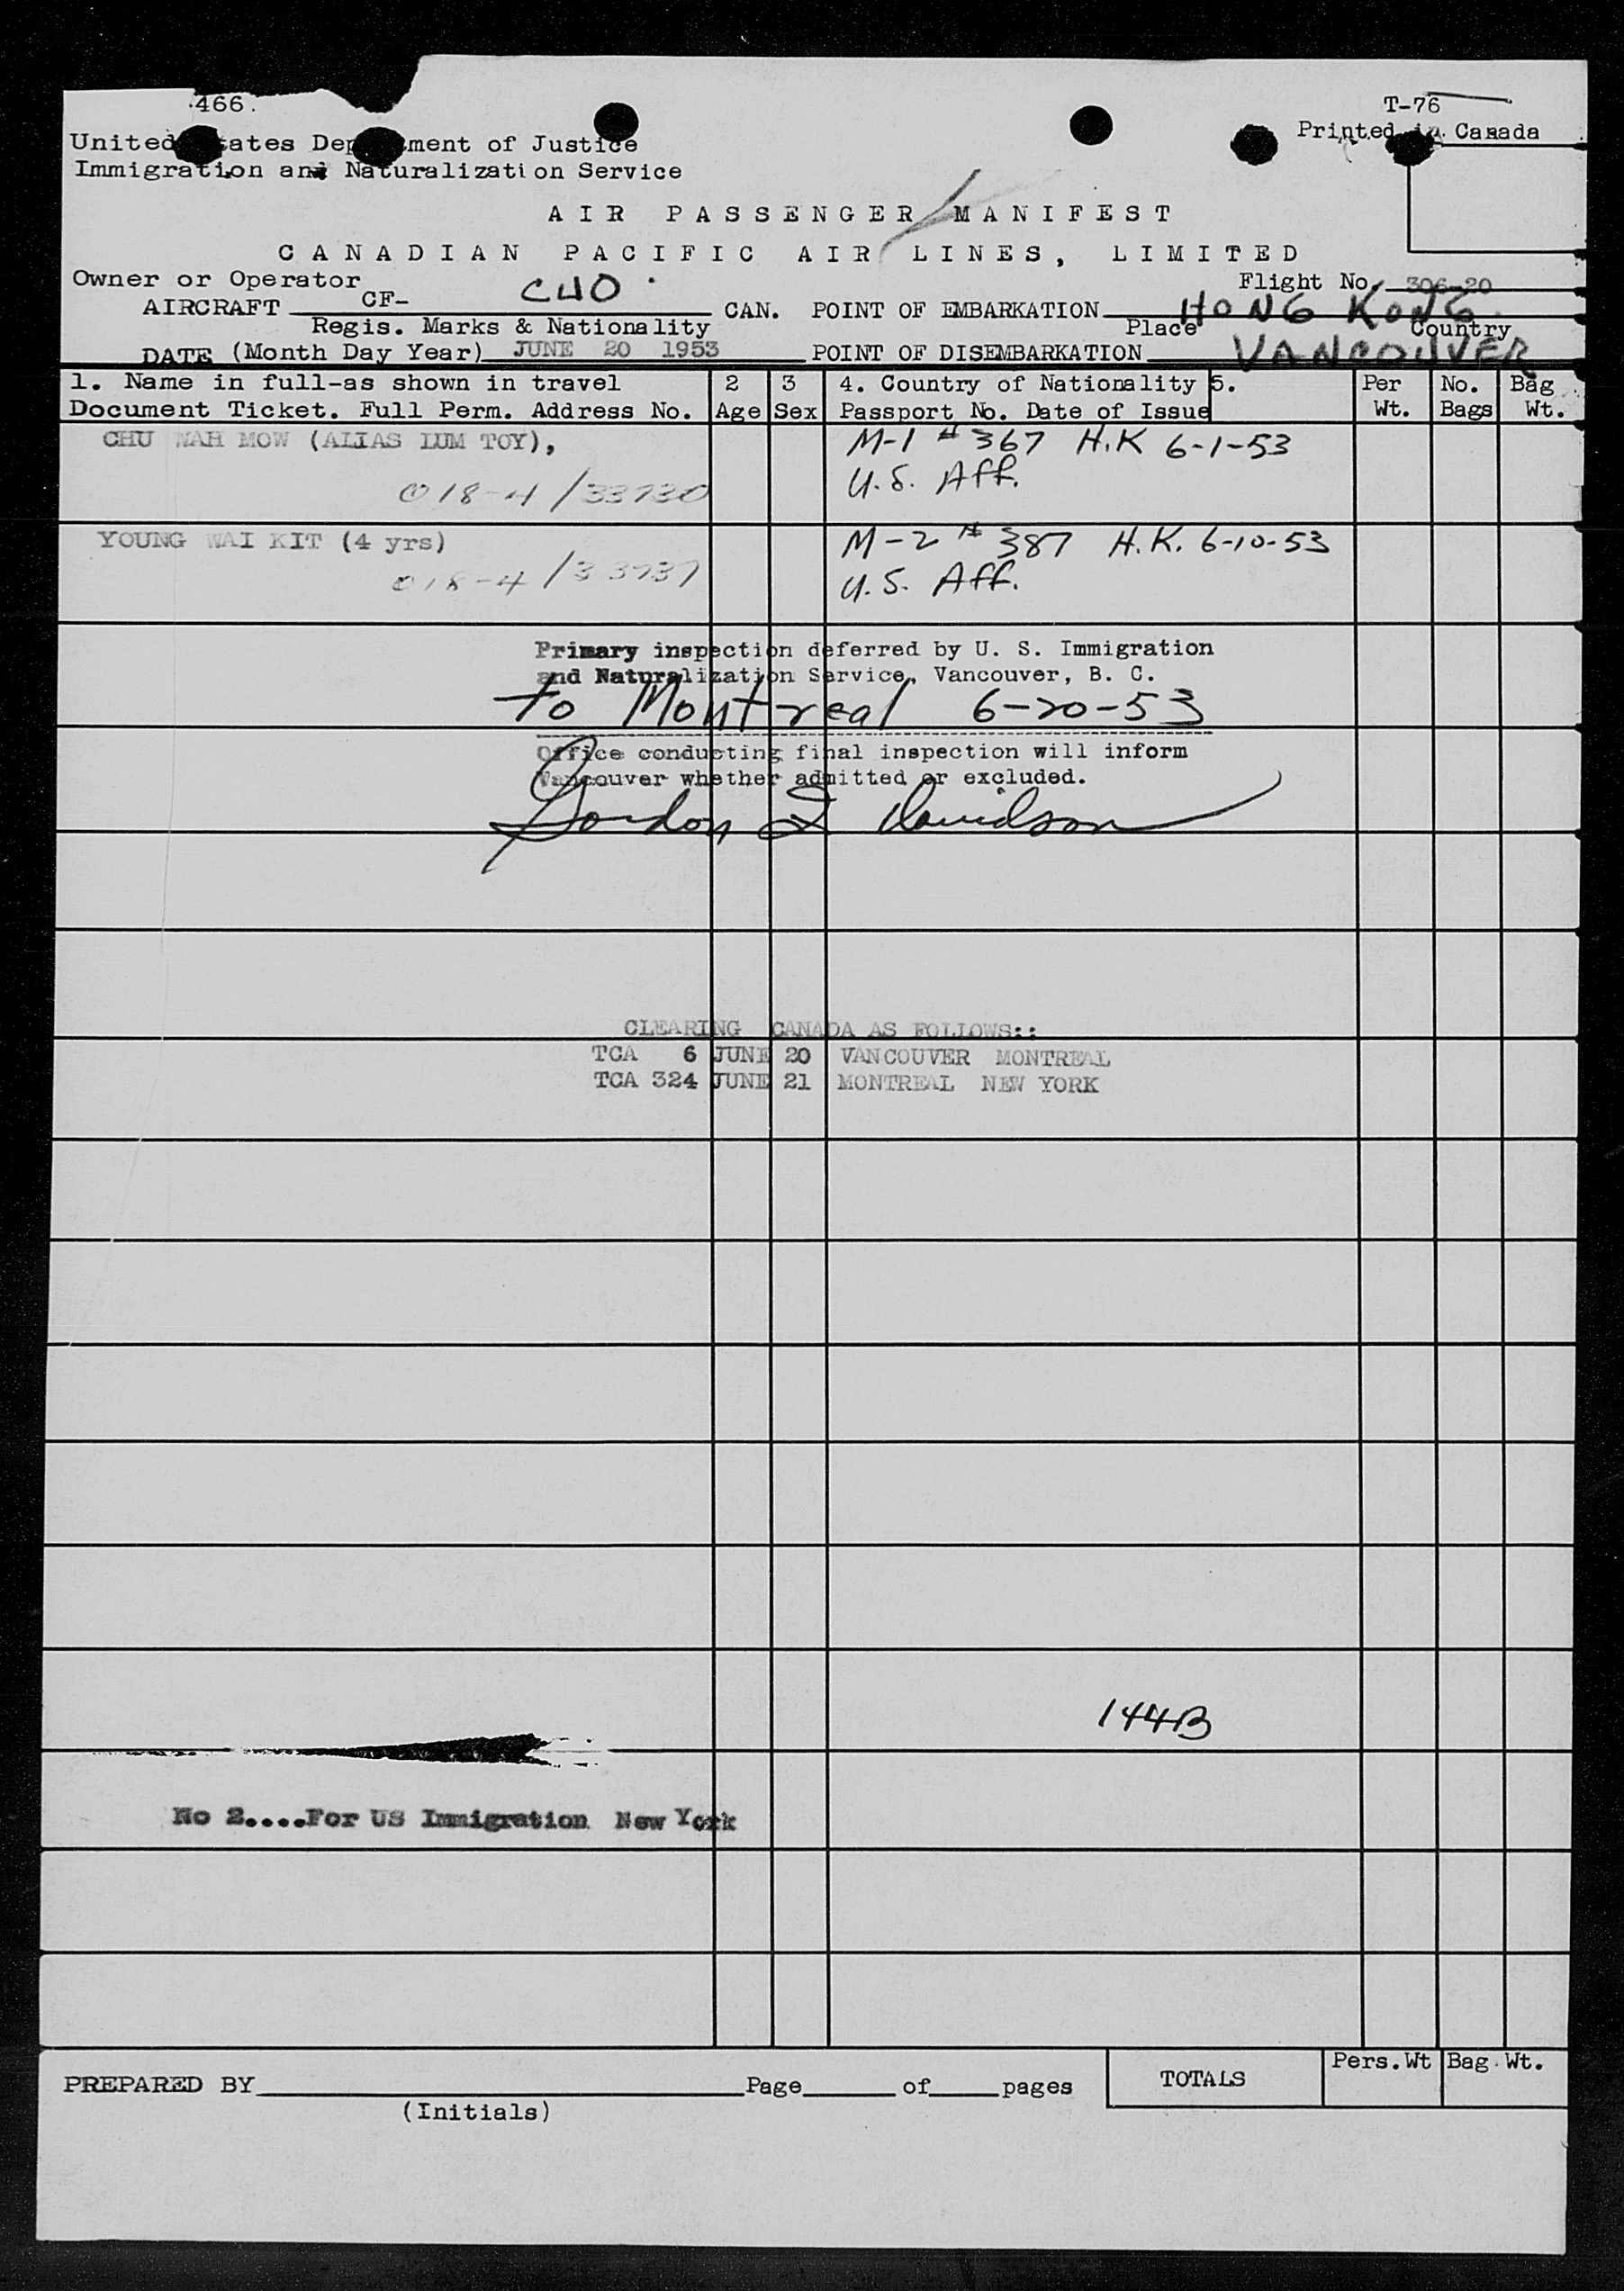 466.
T-76
Printed in Canada
United States Department of Justice
Immigration and Naturalization Service
AIR PASSENGER MANIFEST
CANADIAN PACIFIC AIR LINES, LIMITED
Owner or Operator
Flight No. 306-20
AIRCRAFT CF- CUO. CAN. POINT OF EMBARKATION HONG KONG
Regis. Marks & Nationality Place Country
DATE (Month Day Year) JUNE 20 1953 POINT OF DISEMBARKATION VANCOUVER
1. Name in full-as shown in travel 2 3 4. Country of Nationality 5. Per No. Bag
Document Ticket. Full Perm. Address No. Age Sex Passport No. Date of Issue Wt. Bags Wt.
CHU WAH MOW (ALIAS LUM TOY), M-1 # 367 H.K 6-1-53
018-4/33730 U.S. Aff.
YOUNG WAI KIT (4 yrs) M-2 # 387 H.K. 6-10-53
018-4/33737 U.S. Aff.
Primary inspection deferred by U. S. Immigration
and Naturalization Service, Vancouver, B. C.
to Montreal 6-20-53
Office conducting final inspection will inform
Vancouver whether admitted or excluded.
Gordon I Davidson
CLEARING CANADA AS FOLLOWS::
TCA 6 JUNE 20 VANCOUVER MONTREAL
TCA 324 JUNE 21 MONTREAL NEW YORK
144B
No 2....For US Immigration New York
PREPARED BY Page of pages TOTALS Pers.Wt Bag.Wt.
(Initials)